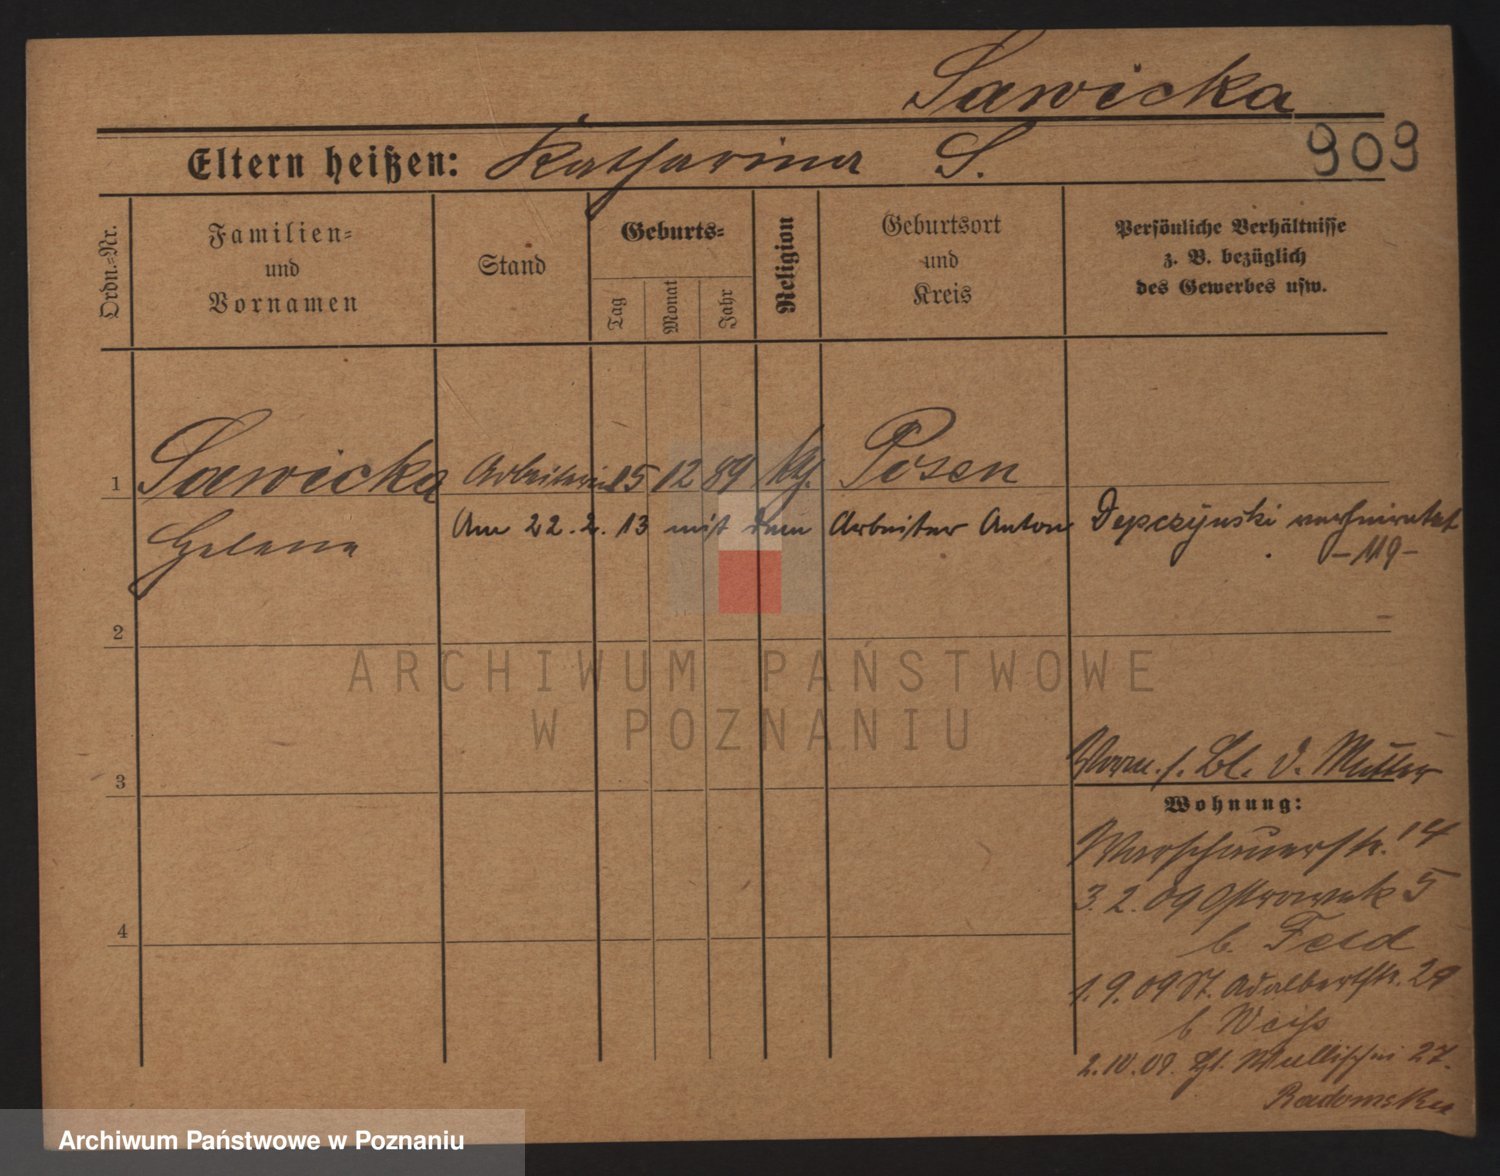 Sawicka
Eltern heißen: Katharina S. 909
Ordn.=Nr.
Familien=
und
Vornamen
Stand
Geburts=
Tag
Monat
Jahr
Religion
Geburtsort
und
Kreis
Persönliche Verhältnisse
z. B. bezüglich
des Gewerbes usw.
1 Sawicka Arbeiterin 15 12 89 kg. Posen
Helena
Am 22. 2. 13 mist dem Arbeiter Anton Depczyński verheiratet
-119-
2
ARCHIWUM PAŃSTWOWE
W POZNANIU
3
s. Bl. d. Mutter
Wohnung:
Warschauerstr. 14
3. 2. 09 Ostrowek 5
b. Feld
4
1. 9. 09 St. Adalbertstr. 29
b Weiß
2. 10. 09. 27.
Radomska
Archiwum Państwowe w Poznaniu